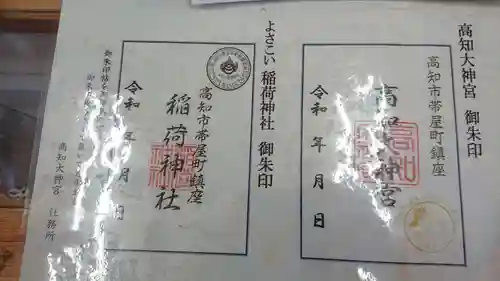 高知大神宮 御朱印
高知市帯屋町鎮座
高知大神宮
令和 年 月 日
よさこい稲荷神社 御朱印
高知市帯屋町鎮座
稲荷神社
令和 年 月 日
高知大神宮 社務所